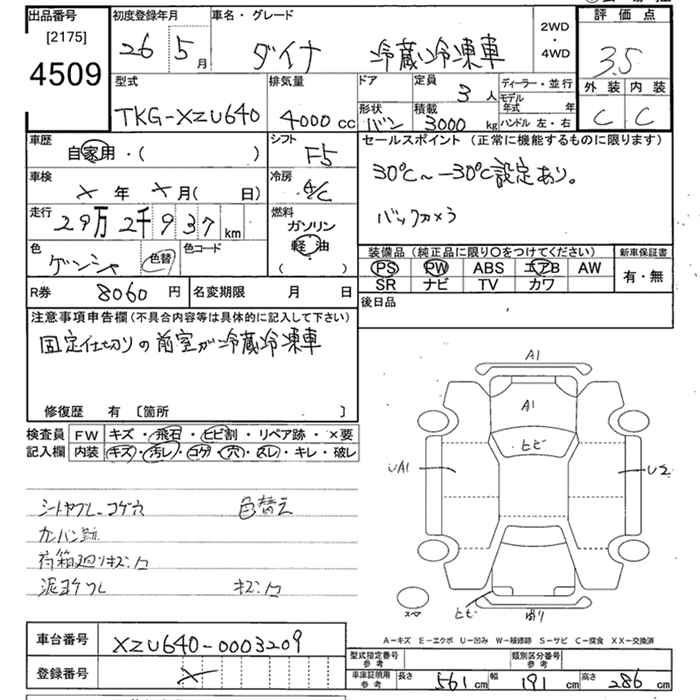 出品番号
[2175]
4509
初度登録年月
26 5月
車名・グレード
ダイナ 冷蔵冷凍車
2WD・4WD
評価点
3.5
外装 内装
C C
型式
TKG-XZU640
排気量
4000 cc
ドア
定員
3人
形状
バン
積載
3000 kg
ディーラー・並行
モデル年式 年
ハンドル 左・右
車歴
自家用・( )
シフト
F5
セールスポイント(正常に機能するものに限ります)
30℃~-30℃設定あり。
バックカメラ
車検
× 年 × 月( 日)
冷房
A/C
走行
29万2千937 km
燃料
ガソリン
軽・油
( )
色
ゲンシャ
色替
色コード
装備品(純正品に限り○をつけてください)
PS PW ABS エアB AW
SR ナビ TV カワ
新車保証書
有・無
R券 8060 円
名変期限 月 日
後日品
注意事項申告欄(不具合内容等は具体的に記入して下さい)
固定仕切りの前室が冷蔵冷凍車
修復歴 有 〔箇所 〕
検査員記入欄
FW キズ・飛石・ヒビ割・リペア跡・×要
内装 キズ・汚レ・コゲ・穴・スレ・キレ・破レ
シートヤブレ コゲ穴 色替え
カンバン跡
荷箱廻りキズ凹
泥ヨケワレ キズ凹
A1
A1
ヒビ
UA1
U2
スペア
ヒビ
曲り
車台番号
XZU640-0003209
登録番号
×
A-キズ E-エクボ U-凹み W-補修跡 S-サビ C-腐食 XX-交換済
型式指定番号 参考
類別区分番号 参考
車庫証明用 参考
長さ 561 cm
幅 191 cm
高さ 286 cm